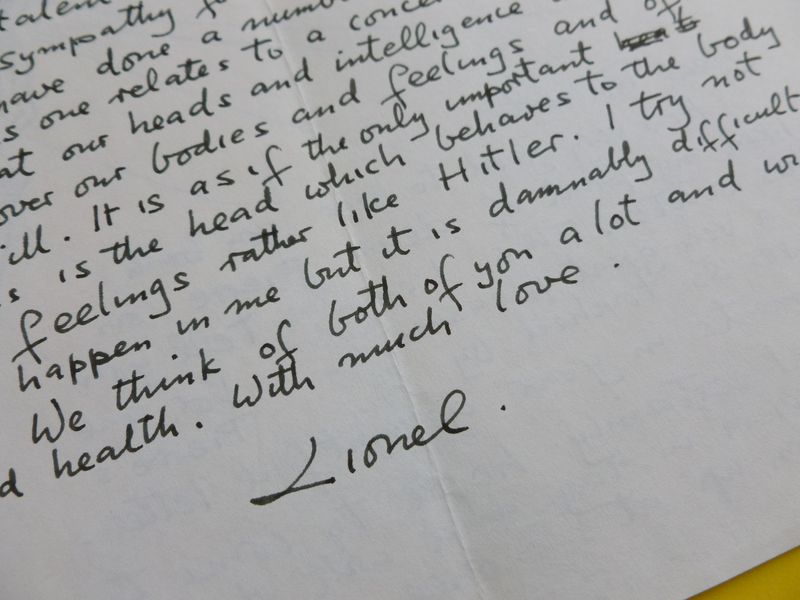 talent
sympathy
have done a
s one relates to a
at our heads and intelligence
over our bodies and feelings and of
ill. It is as if the only important
s is the head which behaves to the body
feelings rather like Hitler. I try not
happen in me but it is damnably difficult
We think of both of you a lot and
d health. With much love.
Lionel.